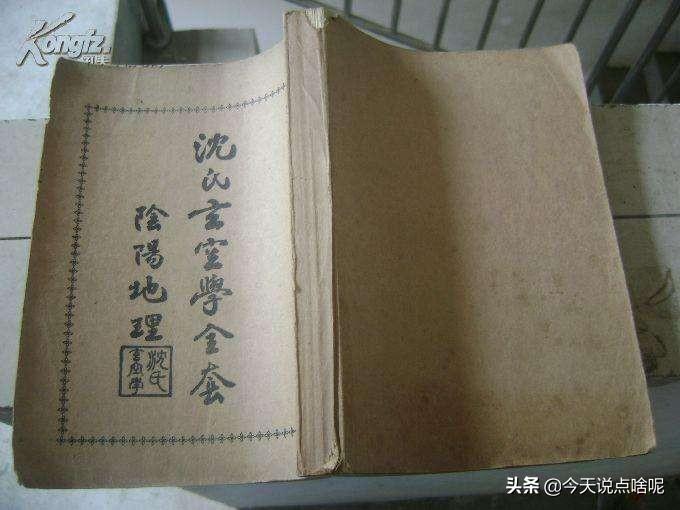 Kongfz
网
沈氏玄空學全套
陰陽地理
沈氏
玄空学
头条 @今天说点啥呢